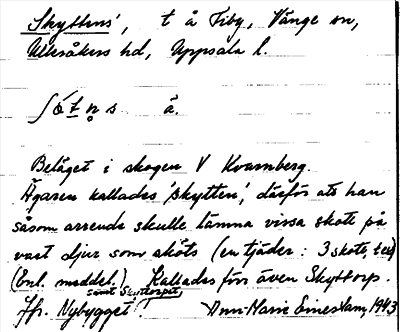 Skyttens', t å Fiby, Vänge sn,
Ulleråkers hd, Uppsala l.
å.
Beläget i skogen V Kvarnberg.
Ägaren kallades 'skytten', därför att han
såsom arrende skulle lämna vissa skott på
vart djur som sköts (en tjäder: 3 skott, etc)
(Enl. meddel.) Kallades förr även Skyttorp.
samt Skyttorpet,
Jfr. Nybygget. Ann-Marie 1943